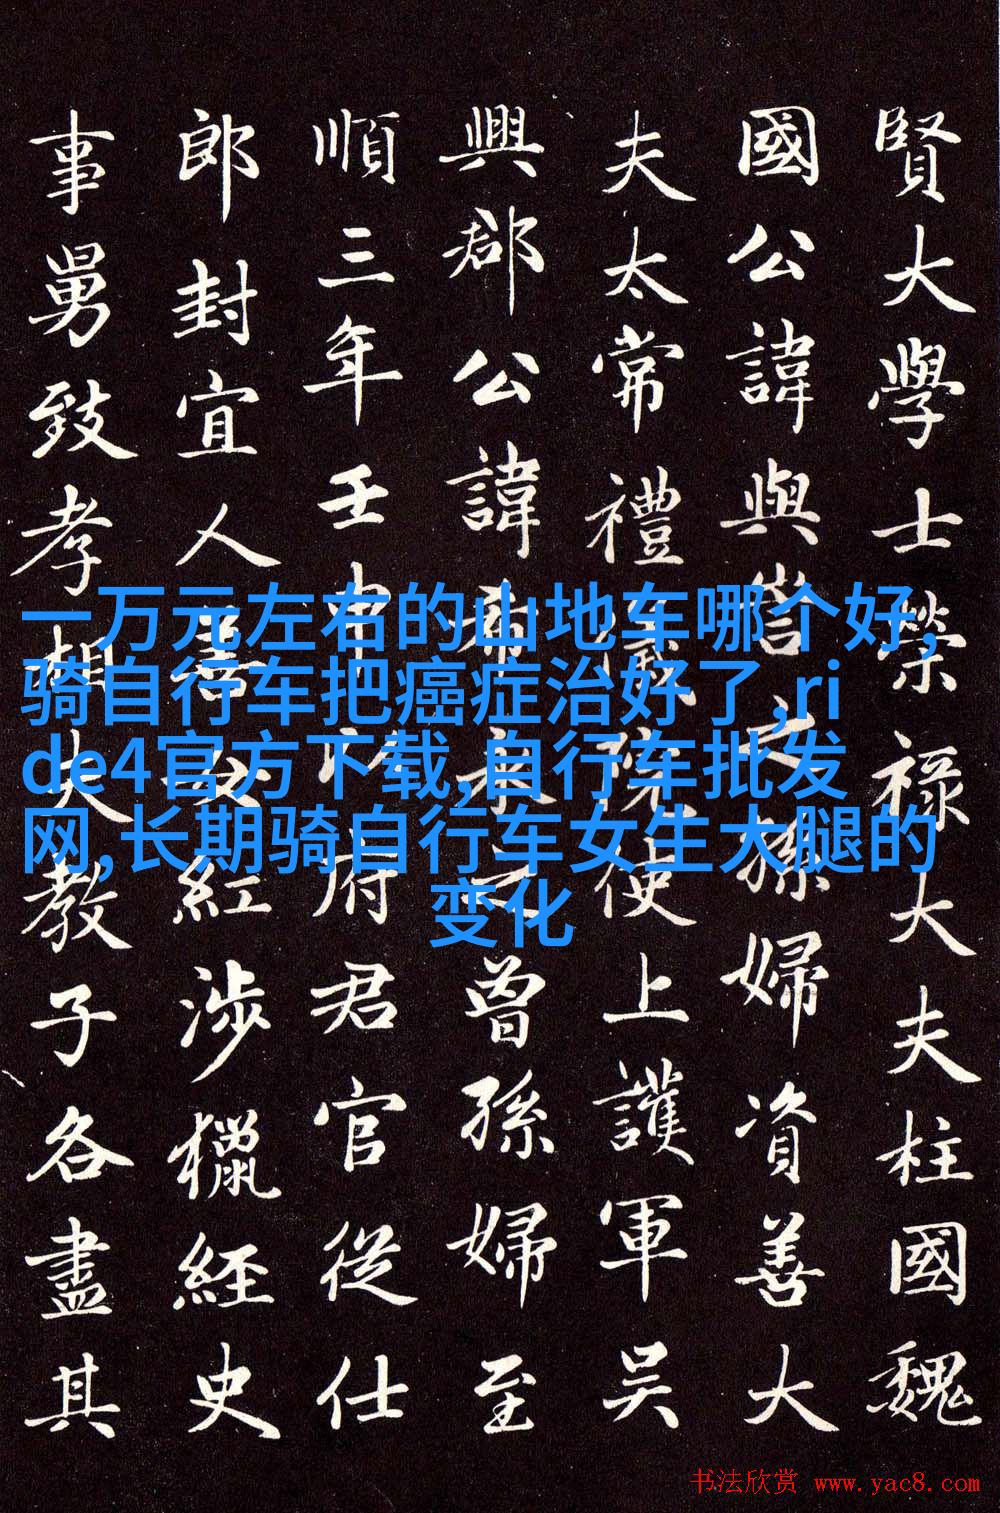 賢大學士榮祿大夫柱國魏
國公諱與訔之孫婦資善大
夫太常禮儀院使上護軍吳
興郡公諱希永之曾孫婦至
順三年壬申以府君官從仕
郎封宜人喜女紅涉獵經史
事舅致孝相夫教子各盡其
一万元左右的山地车哪个好,
骑自行车把癌症治好了,ri
de4官方下载,自行车批发
网,长期骑自行车女生大腿的
变化
书法欣赏 www.yac8.com